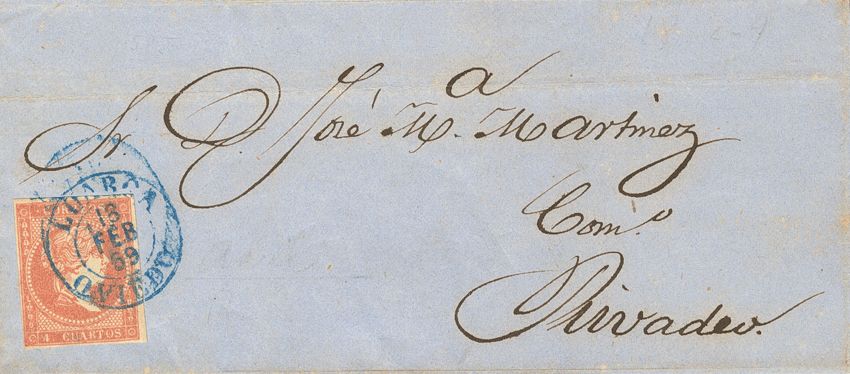 Sr. D. José M.ª Martinez
Com.º
Rivadeo.
LUARCA
13
FEB
59
OVIEDO
4 CUARTOS